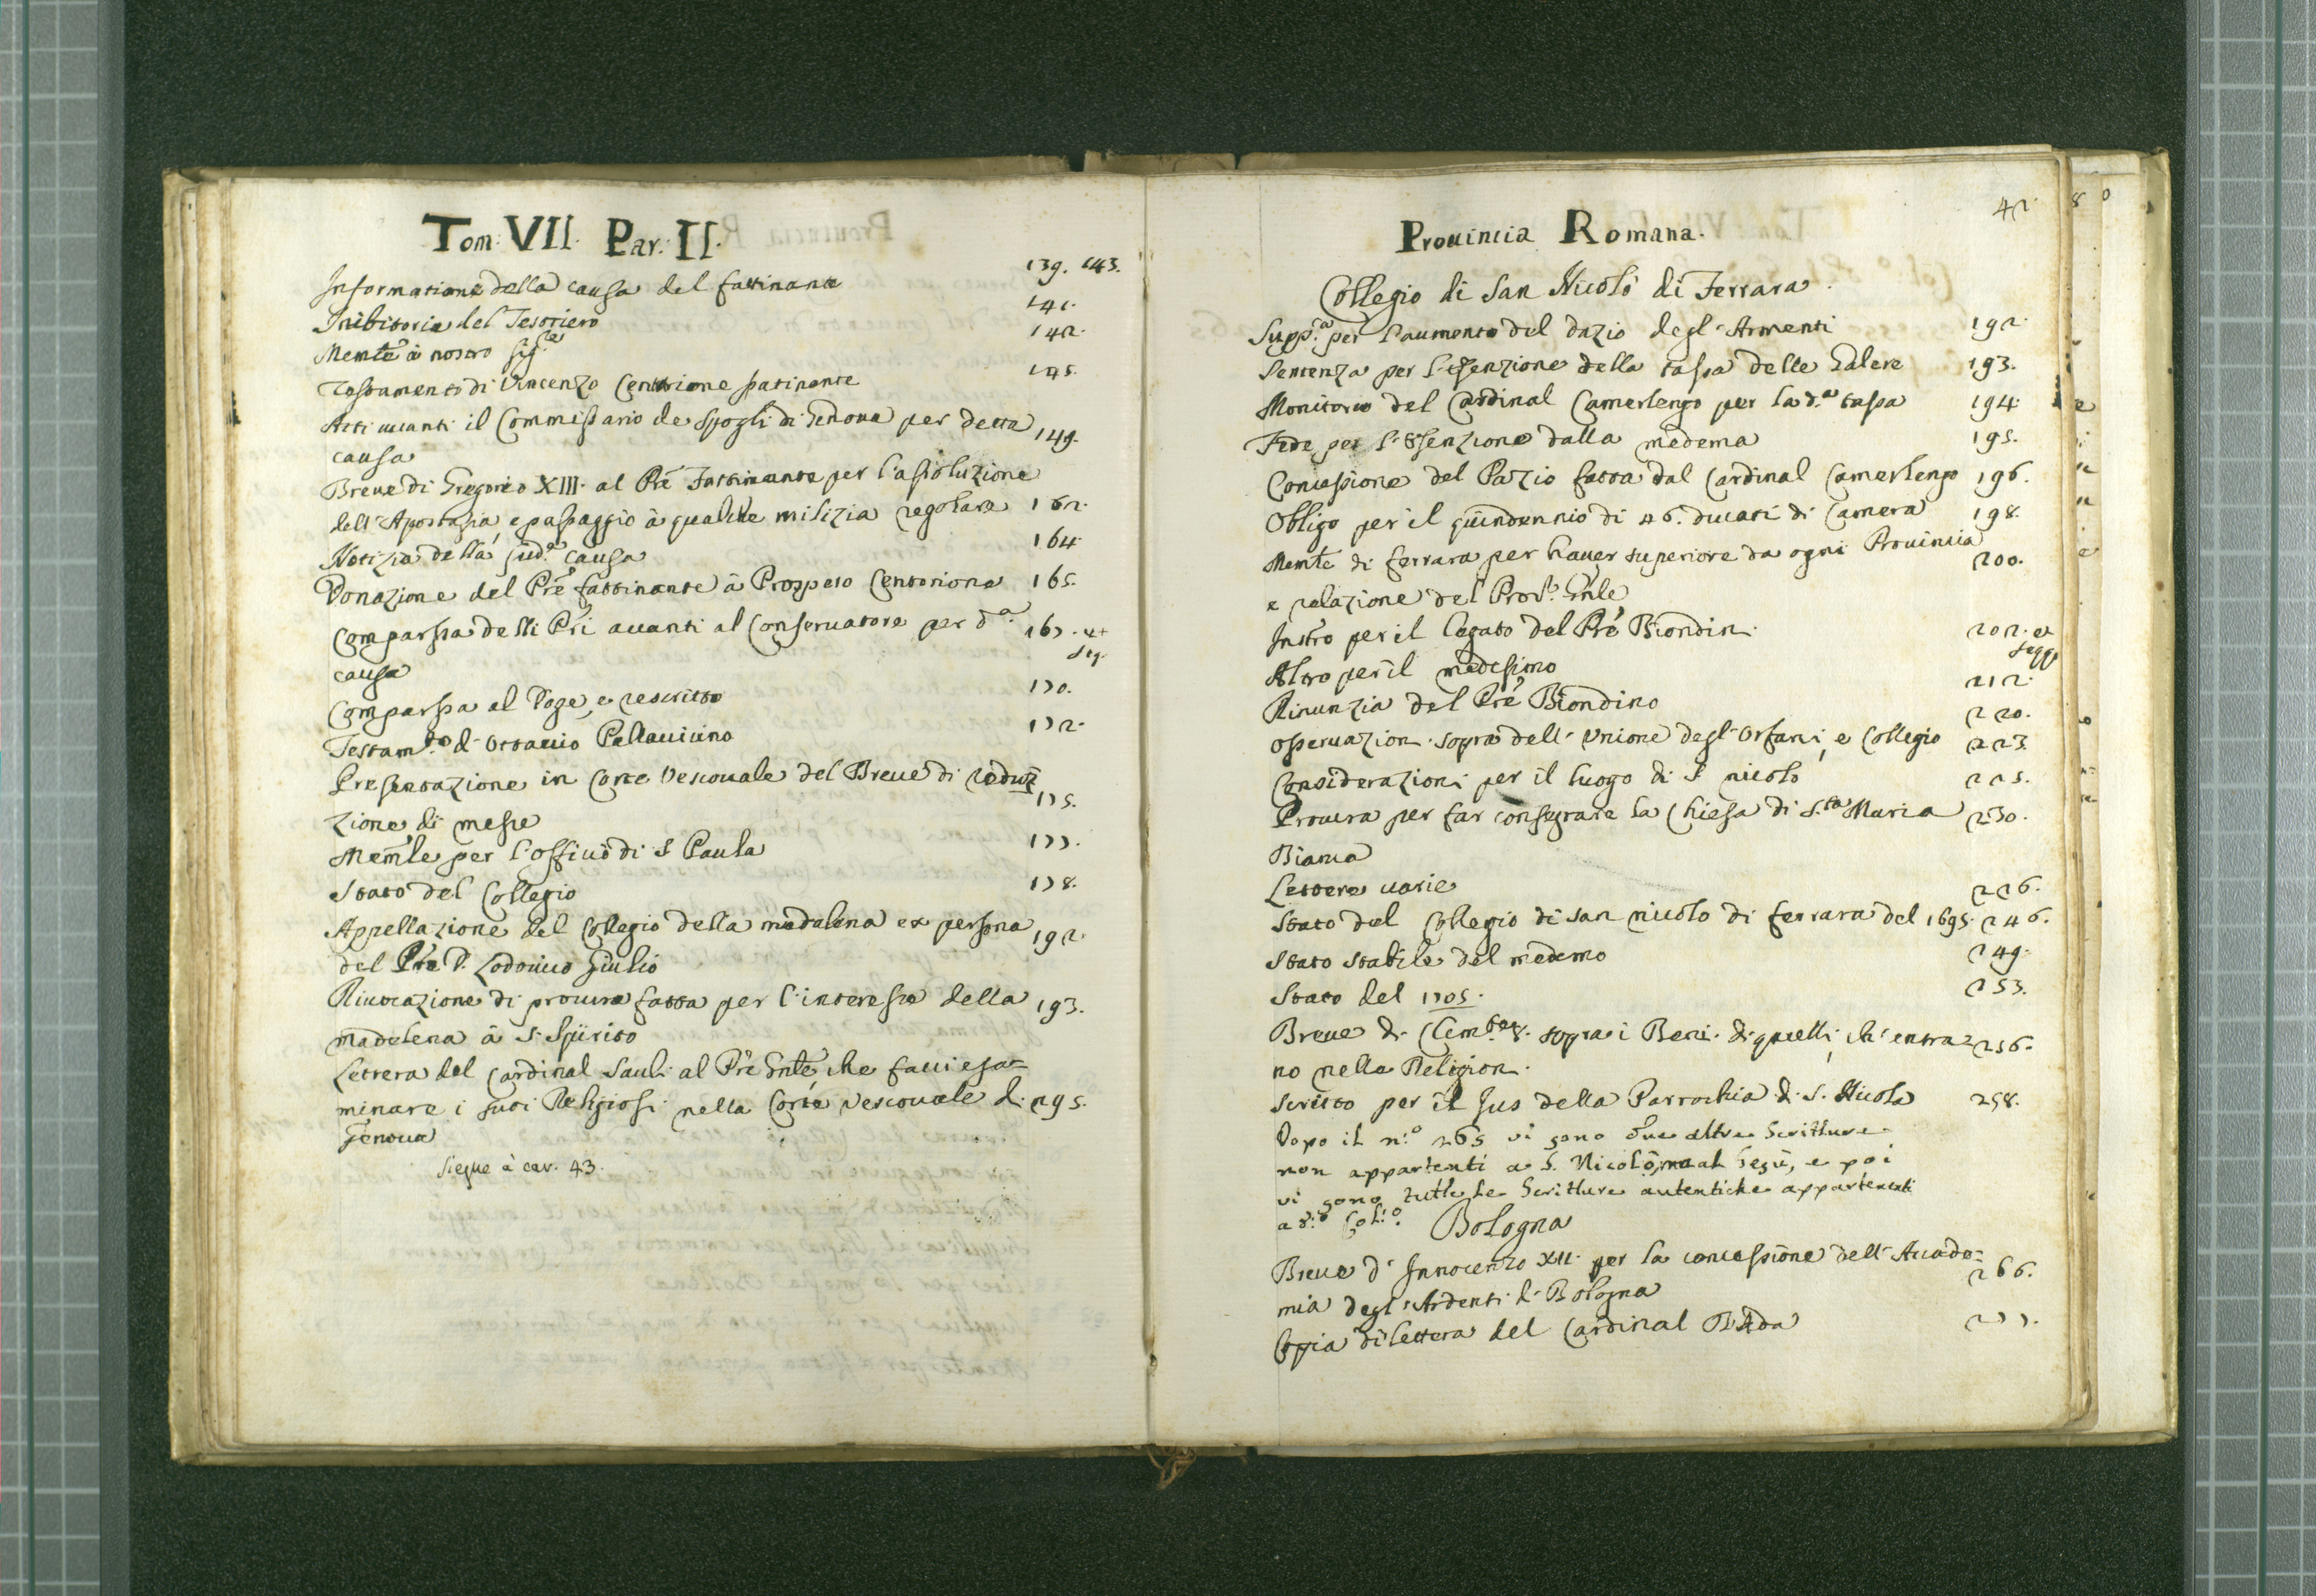 Tom: VII. Par: II.
Informatione della causa del fattinante 139. 143.
Inibitoria del Tesoriero 141.
Memle à nostro Sig.re 142.
Testamento di Vincenzo Centurione fatinante 145.
Atti avanti il Commissario de Spogli di Genova per detta 149.
causa
Breve di Gregorio XIII. al Pre Fattinante per l'assoluzione
dell'Apostasia, e passaggio à qualche milizia regolare 162.
Notizia della sud.a causa 164.
Donazione del Pre fattinante à Prospero Centorione 165.
Comparsa delli Pri avanti al Conservatore per d.a 167. et seg.
causa
Comparsa al Doge, e rescritto 170.
Testam.to di Ottavio Pallavicino 172.
Presentazione in Corte Vescovale del Breve di reduz 175.
zione di messe
Memle per l'Officio di S Paula 177.
Stato del Collegio 178.
Appellazione del Collegio della madalena ex persona 192.
del Pre D. Lodovico Giulio
Rivocazione di procura fatta per l'interesse della 193.
madalena à S. Spirito
Lettera del Cardinal Sauli al Pre Gnle, che facci esa=
minare i suoi Religiosi nella Corte Vescovale di 295.
Genova
Siegue à car. 43.
42.
Provincia Romana.
Collegio di San Nicolò di Ferrara.
Supp.a per l'aumento del dazio degl'Armenti 192.
Sentenza per l'essenzione della tassa delle Galere 193.
Monitorio del Cardinal Camerlengo per la d.a tassa 194.
Fede per l'essenzione dalla medema 195.
Concessione del Dazio fatta dal Cardinal Camerlengo 196.
Obligo per il quindennio di 46. ducati di Camera 198.
Memle di ferrara per haver superiore da ogni Provincia 200.
e relazione del Pro.re Gnle
Instro per il legato del Pre Biondin. 202. et segg.
Altro per il medesimo 212.
Rinunzia del Pre Biondino 220.
Osservazion. sopra dell'Unione degl'Orfani, e Collegio 223.
Considerazioni per il luogo di S nicolò 225.
Procura per far consegrare la Chiesa di S.ta Maria 230.
Bianca
Lettere varie 226.
Stato del Collegio di san nicolo di ferrara del 1695. 246.
Stato stabile del medemo 249.
Stato del 1705. 253.
Breve di Clem.te 8. sopra i Beni di quelli, ch'entra= 256.
no nella Religion.
Scritto per il Jus della Parrochia di S. Nicolo 258.
Dopo il n.o 265 vi sono due altre Scritture
non appartenti a S. Nicolò, ma al Gesù, e poi
vi sono tutte le Scritture autentiche appartenenti
a d.o Col.o
Bologna
Breve d'Innocenzo XII. per la concessione dell'Acade= 266.
mia degl'Ardenti di Bologna
Copia di lettera del Cardinal 277.